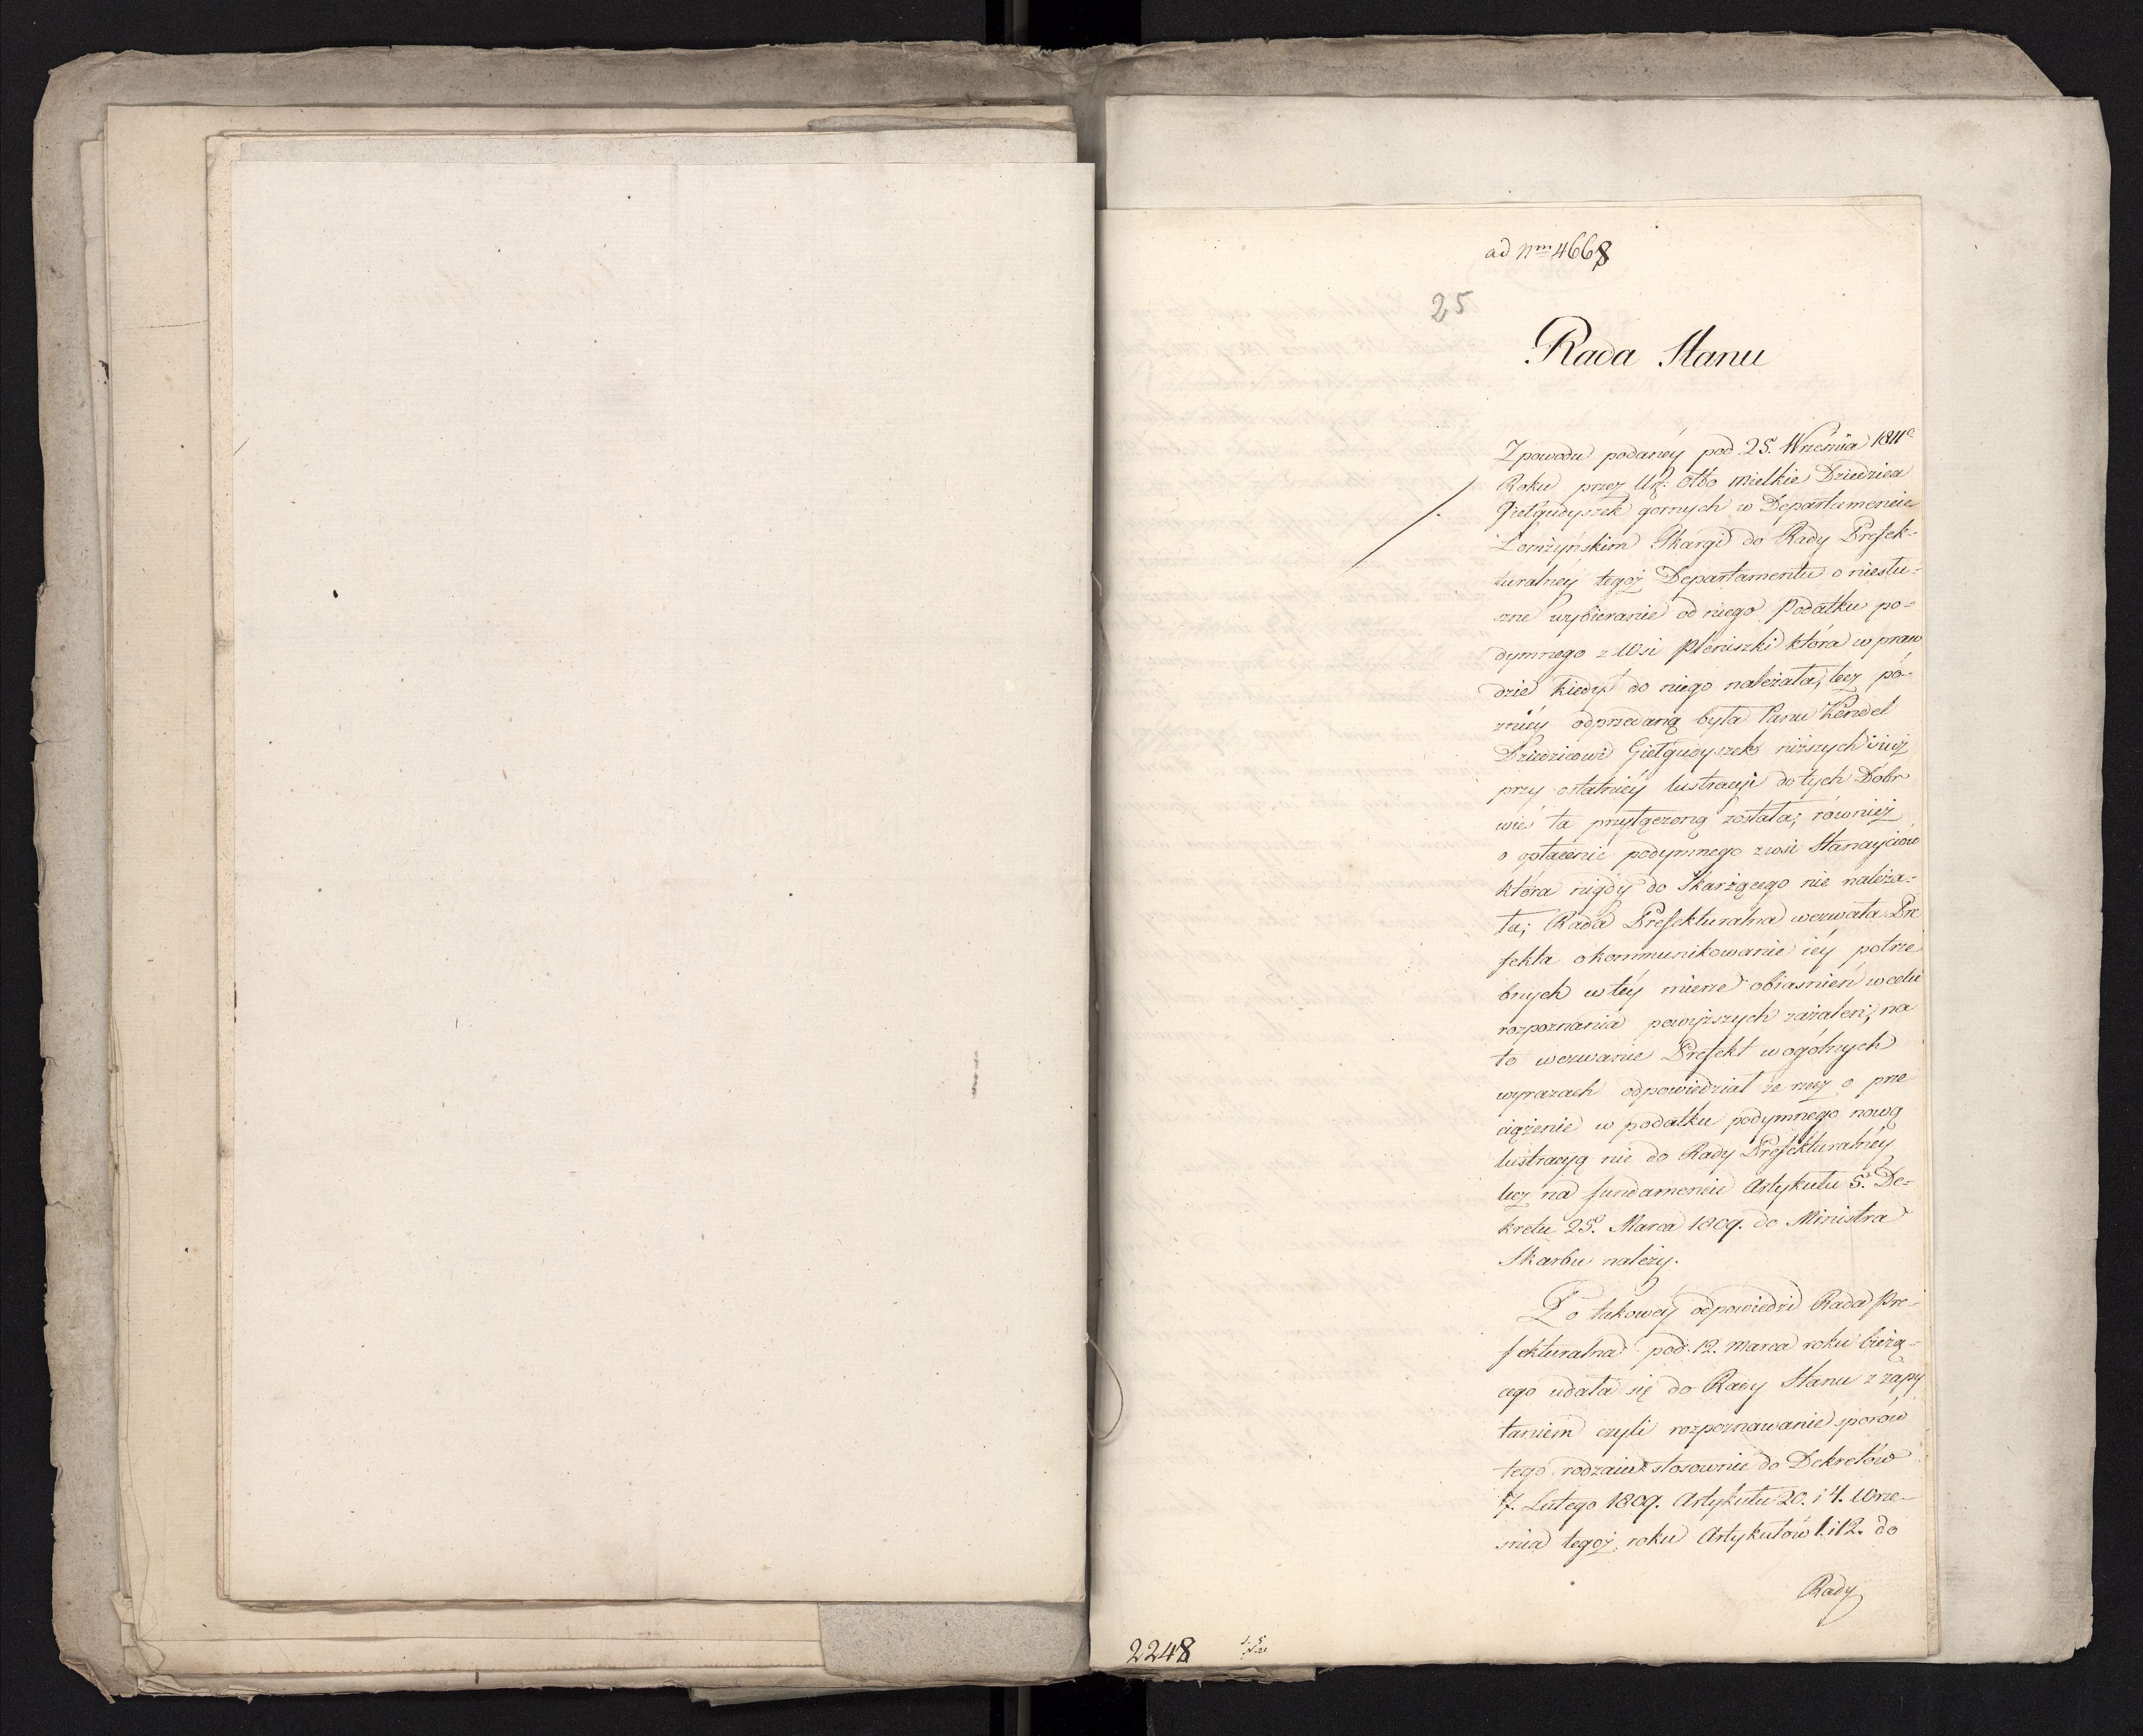 ad Nm 4668
25
Rada Stanu
Z powodu podaney pod 25. Września 1811o
Roku przez Ur: Otto Mielkie Dziedzica
Giełgudyszek gornych w Departamencie
Łomżyńskim Skargi do Rady Prefek-
turalnéy tegoż Departamentu o niesłu-
szne wybieranie od niego Podatku po-
dymnego z Wsi Pleniszki która w praw
dzie kiedyś do niego należała, lecz pó-
zniéy odprzedaną była Panu Kendel
Dziedzicowi Giełgudyszek niższych i już
przy ostatniéy lustracyi do tych Dóbr
wieś ta przyłączoną została; również
o opłacenie podymnego z wsi
która nigdy do Skarżącego nie należa-
ła; Rada Prefekturalna wezwała Pre
fekta o kommunikowanie iéy potrze
bnych w téy mierze obiasnień w celu
rozpoznania powyższych zażaleń; na
to wezwanie Prefekt w ogólnych
wyrazach odpowiedział że rzecz o prze
ciążenie w podatku podymnego nową
lustracyą nie do Rady Prefekturalnéy
lecz na fundamencie Artykułu 5. De-
kretu 25. Marca 1809. do Ministra
Skarbu należy.
Po takowéy odpowiedzi Rada Pre-
fekturalna pod 12. Marca roku bieżą-
cego udała się do Rady Stanu z zapy
taniem czyli rozpoznawanie sporów
tego rodzaiu stosownie do Dekretów
7. Lutego 1809. Artykułu 20. i 4. Wrze-
śnia tegoż roku Artykułów 1. i 12. do
Rady
2248